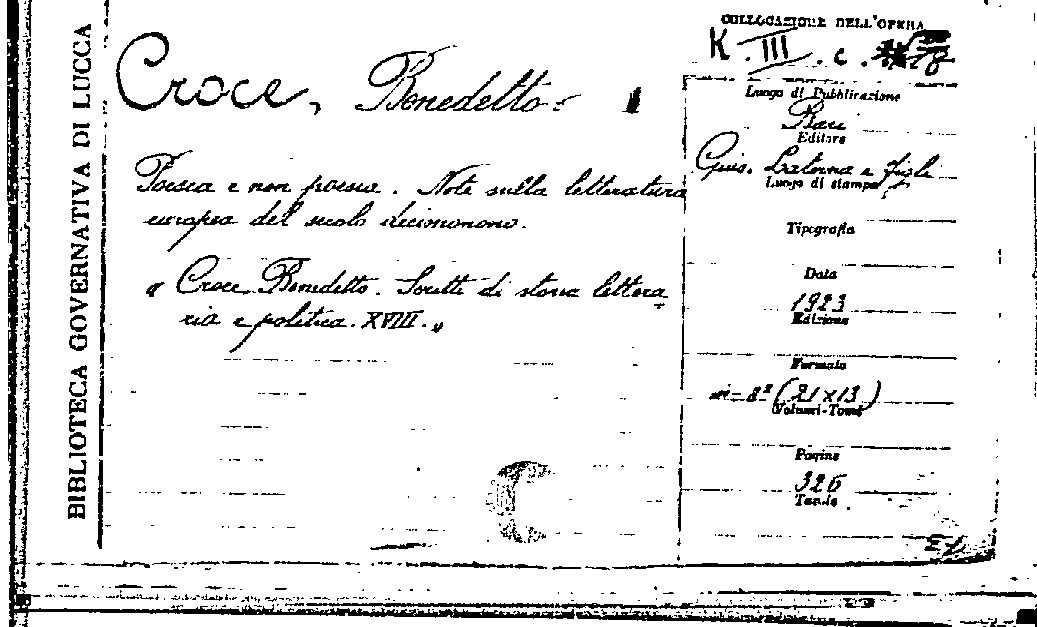 BIBLIOTECA GOVERNATIVA DI LUCCA
COLLOCAZIONE DELL'OPERA
K. III. c.
Croce, Benedetto =
Poesia e non poesia. Note sulla letteratura
europea del secolo decimonono.
" Croce Benedetto. Scritti di storia lettera
ria e politica. XVIII. "
Luogo di Pubblicazione
Bari
Editore
Gius. Laterza e Figli
Luogo di stampa
Tipografia
Data
1923
Edizione
Formato
in-8º (21x13)
Volumi-Tomi
Pagine
326
Tavole